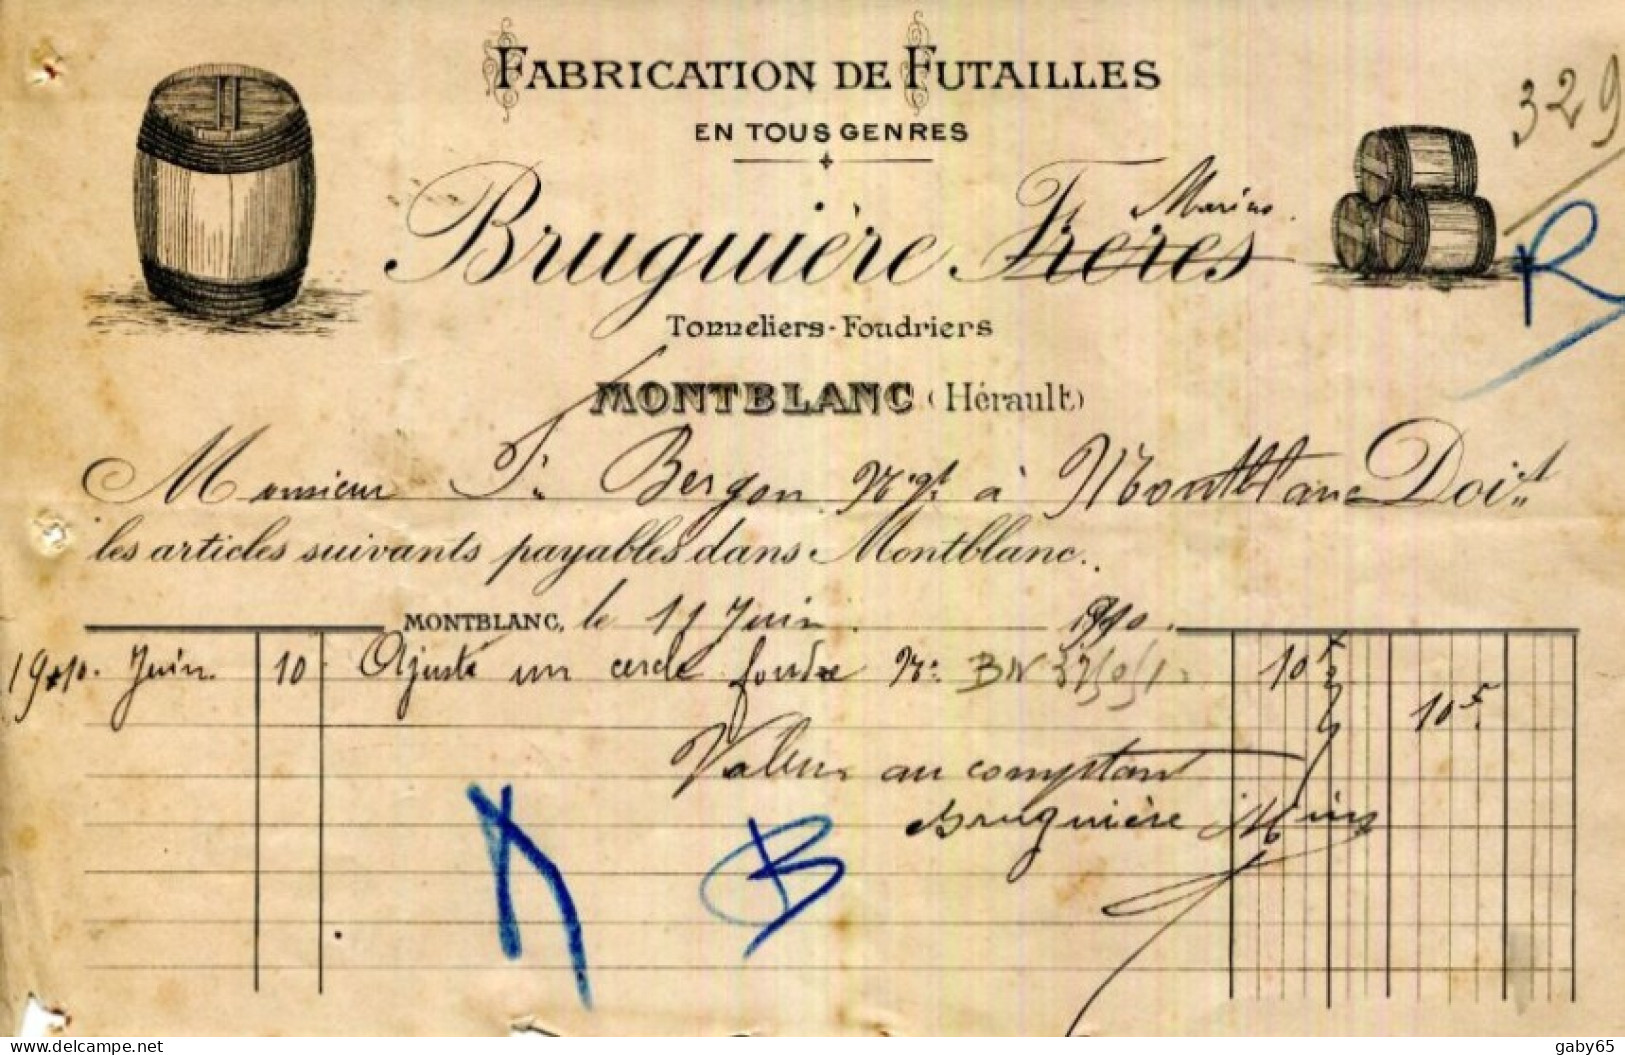 FABRICATION DE FUTAILLES
EN TOUS GENRES
329
Bruguière Frères Marius.
Tonneliers-Foudriers
MONTBLANC (Hérault)
Monsieur Bergon Ngt à Montblanc Doit
les articles suivants payables dans Montblanc.
MONTBLANC, le 11 Juin 1910.
1910. Juin 10 Ajusté un cercle foudre N° 10 f
10 f
Valeur au comptant
Bruguière Marius
B
delcampe.net
gaby65